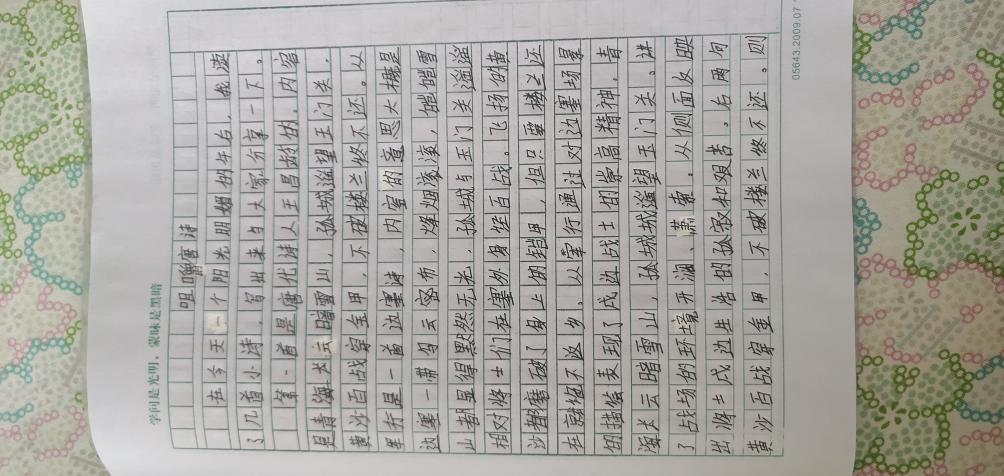 学问是光明，蒙昧是黑暗
咀嚼唐诗
在今天一个阳光明媚的午后，我选
了几首小诗，写出来与大家分享一下。
第一首是唐代诗人王昌龄的，内容
是青海长云暗雪山，孤城遥望玉门关，
黄沙百战穿金甲，不破楼兰终不还。从
军行是一首边塞诗，内容的意思大概是
边塞一带乌云密布，烽烟滚滚，皑皑雪
山都显得黯然无光，孤城与玉门关遥遥
相对将士们在塞外身经百战。飞扬的黄
沙都磨破了身上的铠甲，但只要楼兰还
在就绝不返乡，从军行通过对边塞场景
的描绘表现了戍边战士的崇高精神，青
海长云暗雪山，孤城城遥望玉门关。讲
了战场的环境开阔、萧索，从侧面反映
出将士戍边生活的孤寂和艰苦、右两句
黄沙百战穿金甲，不破楼兰终不还。则
05643.2009.07